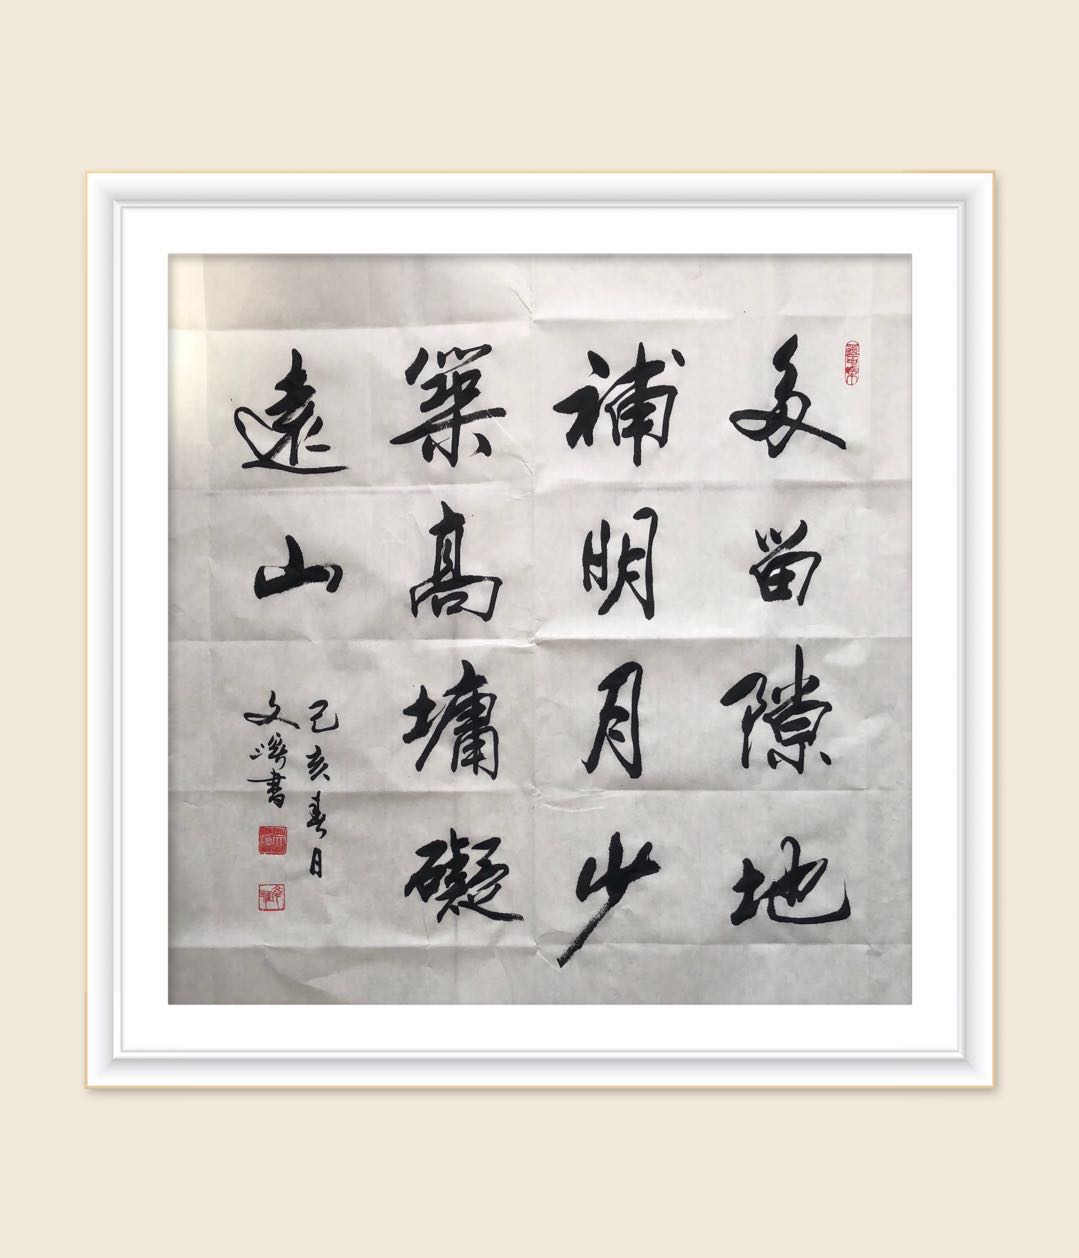 多留隙地
補明月少
築高墉礙
遠山
己亥春日
文濤書